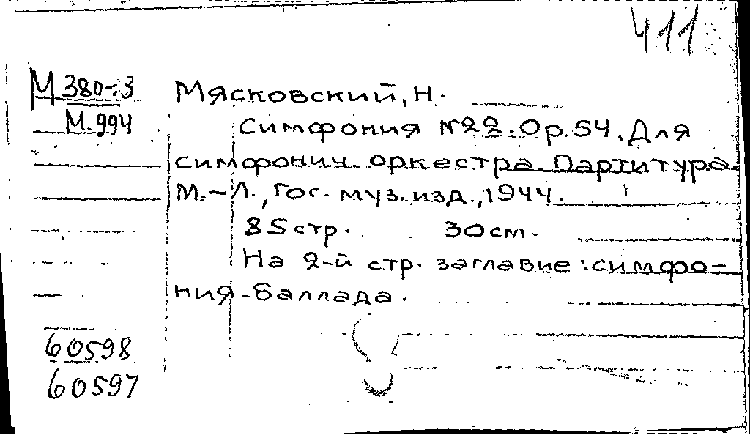 411
М 380-3 Мясковский, Н.
М.994
Симфония №22. Ор.54. Для
симфонич. оркестра. Партитура
М.-Л., Гос. муз. изд., 1944.
85 стр. 30 см.
На 2-й стр. заглавие: симфо-
ния-баллада.
60598
60597